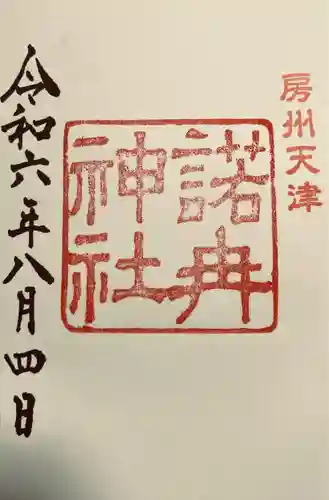 房州天津
諾冉
神社
令和六年八月四日